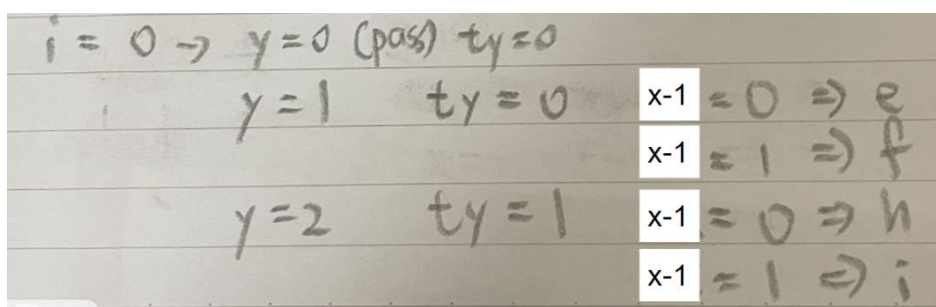 i = 0 → y = 0 (pass) ty = 0
y = 1 ty = 0 x-1 = 0 ⇒ e
x-1 = 1 ⇒ f
y = 2 ty = 1 x-1 = 0 ⇒ h
x-1 = 1 ⇒ i